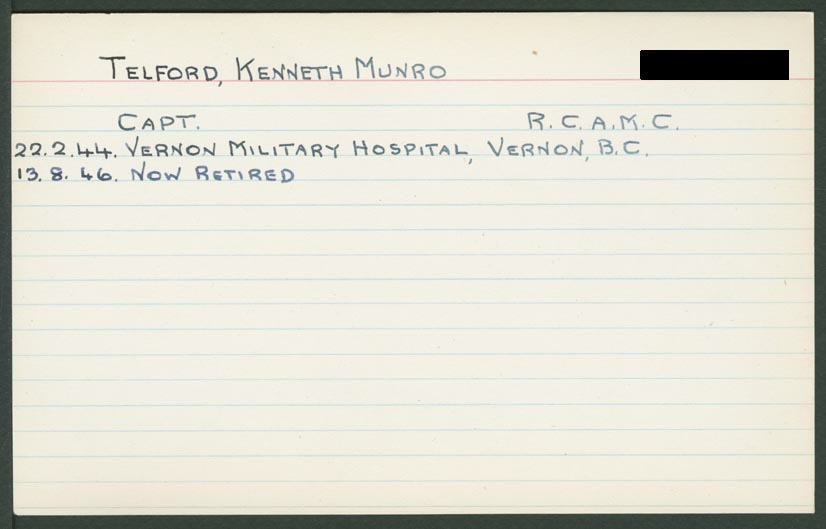 TELFORD, KENNETH MUNRO
CAPT. R.C.A.M.C.
22.2.44. VERNON MILITARY HOSPITAL, VERNON, B.C.
13.8.46. NOW RETIRED